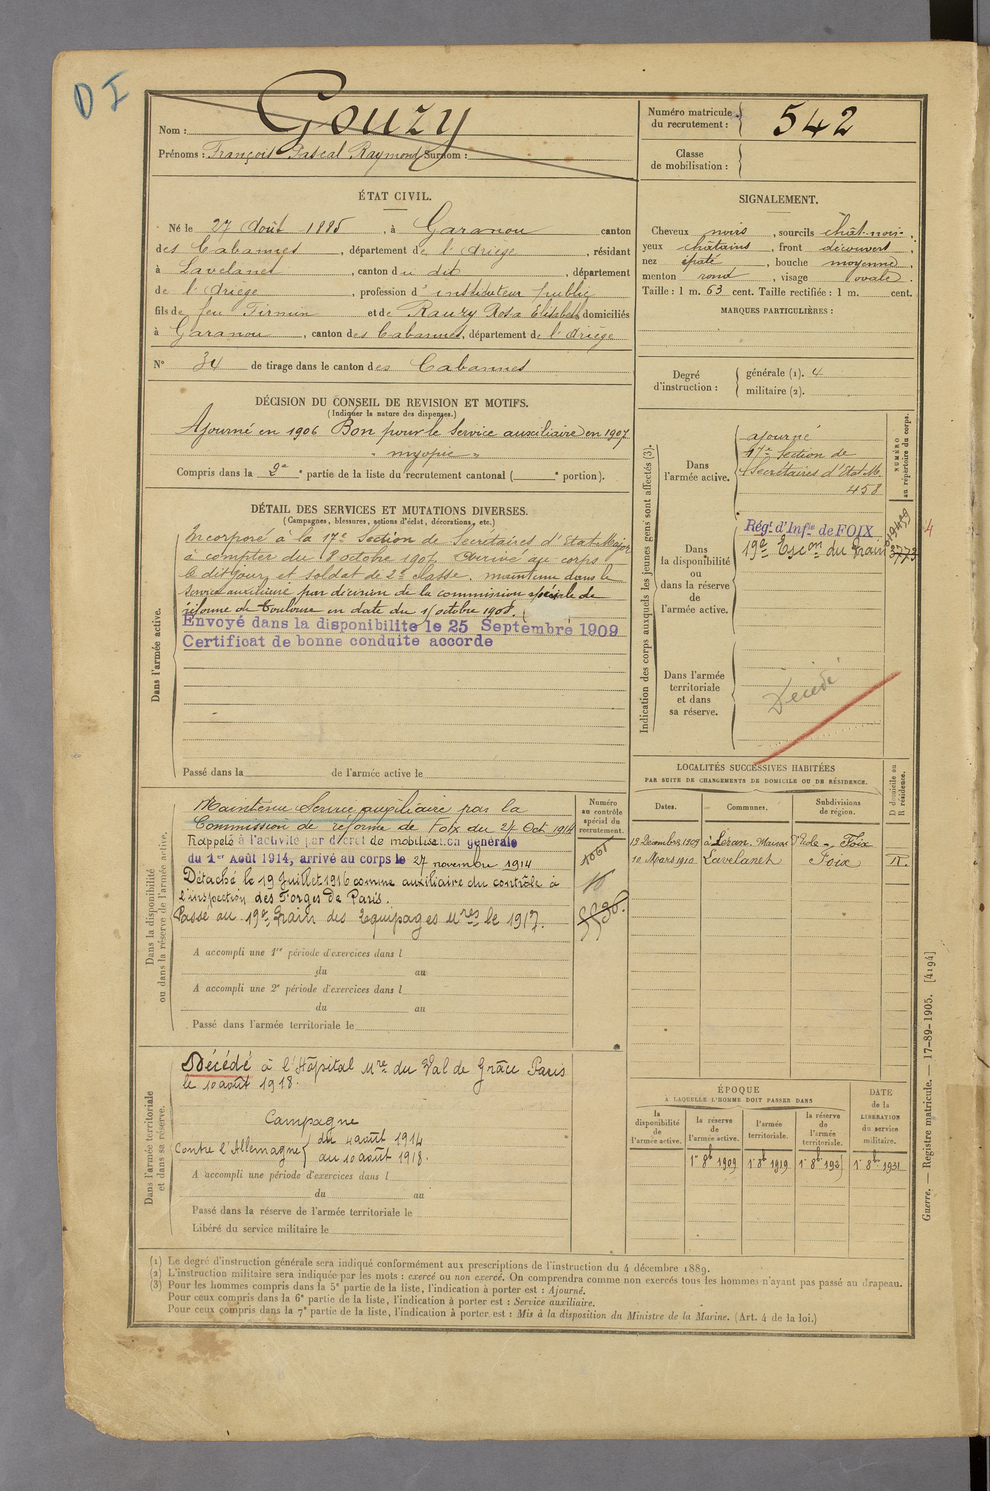 D I
Nom : Gouzy
Prénoms : François Pascal Raymond Surnom :
Numéro matricule du recrutement : 542
Classe de mobilisation :
ÉTAT CIVIL.
Né le 27 Août 1885, à Garanou canton
des Cabannes, département de l'Ariège, résidant
à Lavelanet, canton du dit, département
de l'Ariège, profession d'instituteur public
fils de feu Firmin et de Rauzy Rosa Elisabeth domiciliés
à Garanou, canton des Cabannes, département de l'Ariège
N° 34 de tirage dans le canton des Cabannes
SIGNALEMENT.
Cheveux noirs, sourcils chât-noir.
yeux châtains, front découvert
nez épaté, bouche moyenne,
menton rond, visage ovale.
Taille : 1 m. 63 cent. Taille rectifiée : 1 m. cent.
MARQUES PARTICULIÈRES :
Degré d'instruction : générale (1). 4
militaire (2).
DÉCISION DU CONSEIL DE REVISION ET MOTIFS.
(Indiquer la nature des dispenses.)
Ajourné en 1906 Bon pour le Service auxiliaire en 1907
" myopie "
Compris dans la 2e partie de la liste du recrutement cantonal ( e portion).
DÉTAIL DES SERVICES ET MUTATIONS DIVERSES.
(Campagnes, blessures, actions d'éclat, décorations, etc.)
Dans l'armée active.
Incorporé à la 17e Section de Secrétaires d'Etat Major
à compter du 8 octobre 1907. Arrivé au corps
le dit jour et soldat de 2e classe. maintenu dans le
service auxiliaire par décision de la commission spéciale de
réforme de Toulouse en date du 1 octobre 1908.
Envoyé dans la disponibilité le 25 Septembre 1909
Certificat de bonne conduite accordé
Passé dans la de l'armée active le
Indication des corps auxquels les jeunes gens sont affectés (3).
NUMÉRO au répertoire du corps.
Dans l'armée active.
ajourné
17e Section de
Secrétaires d'Etat M.
458
Dans la disponibilité ou dans la réserve de l'armée active.
Régt d'Infie de FOIX
19e Escon du Train
3773
Dans l'armée territoriale et dans sa réserve.
Décédé
LOCALITÉS SUCCESSIVES HABITÉES
PAR SUITE DE CHANGEMENTS DE DOMICILE OU DE RÉSIDENCE.
D domicile ou R résidence.
Dates. Communes. Subdivisions de région.
19 Décembre 1909 à Léran. Maison d'École - Foix
10 Mars 1910 Lavelanet Foix R.
Dans la disponibilité ou dans la réserve de l'armée active.
Numéro au contrôle spécial du recrutement.
Maintenu Service auxiliaire par la
Commission de réforme de Foix du 27 Oct 1914
Rappelé à l'activité par décret de mobilisation générale
du 1er Août 1914, arrivé au corps le 27 novembre 1914
Détaché le 19 Juillet 1916 comme auxiliaire du contrôle à
l'inspection des Forges de Paris.
Passé au 19e Train des Equipages Mres le 1917.
A accompli une 1re période d'exercices dans l
du au
A accompli une 2e période d'exercices dans l
du au
Passé dans l'armée territoriale le
Dans l'armée territoriale et dans sa réserve.
Décédé à l'Hôpital Mre du Val de Grâce Paris
le 10 août 1918.
Campagne
Contre l'Allemagne du 4 août 1914
au 10 août 1918.
A accompli une période d'exercices dans l
du au
Passé dans la réserve de l'armée territoriale le
Libéré du service militaire le
ÉPOQUE
À LAQUELLE L'HOMME DOIT PASSER DANS
la disponibilité de l'armée active. la réserve de l'armée active. l'armée territoriale. la réserve de l'armée territoriale.
DATE de la LIBÉRATION du service militaire.
1r 8b 1909 1r 8b 1919 1r 8b 192 1r 8b 1931
Guerre. — Registre matricule. — 17-89-1905. [4194]
(1) Le degré d'instruction générale sera indiqué conformément aux prescriptions de l'instruction du 4 décembre 1889.
(2) L'instruction militaire sera indiquée par les mots : exercé ou non exercé. On comprendra comme non exercés tous les hommes n'ayant pas passé au drapeau.
(3) Pour les hommes compris dans la 5e partie de la liste, l'indication à porter est : Ajourné.
Pour ceux compris dans la 6e partie de la liste, l'indication à porter est : Service auxiliaire.
Pour ceux compris dans la 7e partie de la liste, l'indication à porter est : Mis à la disposition du Ministre de la Marine. (Art. 4 de la loi.)